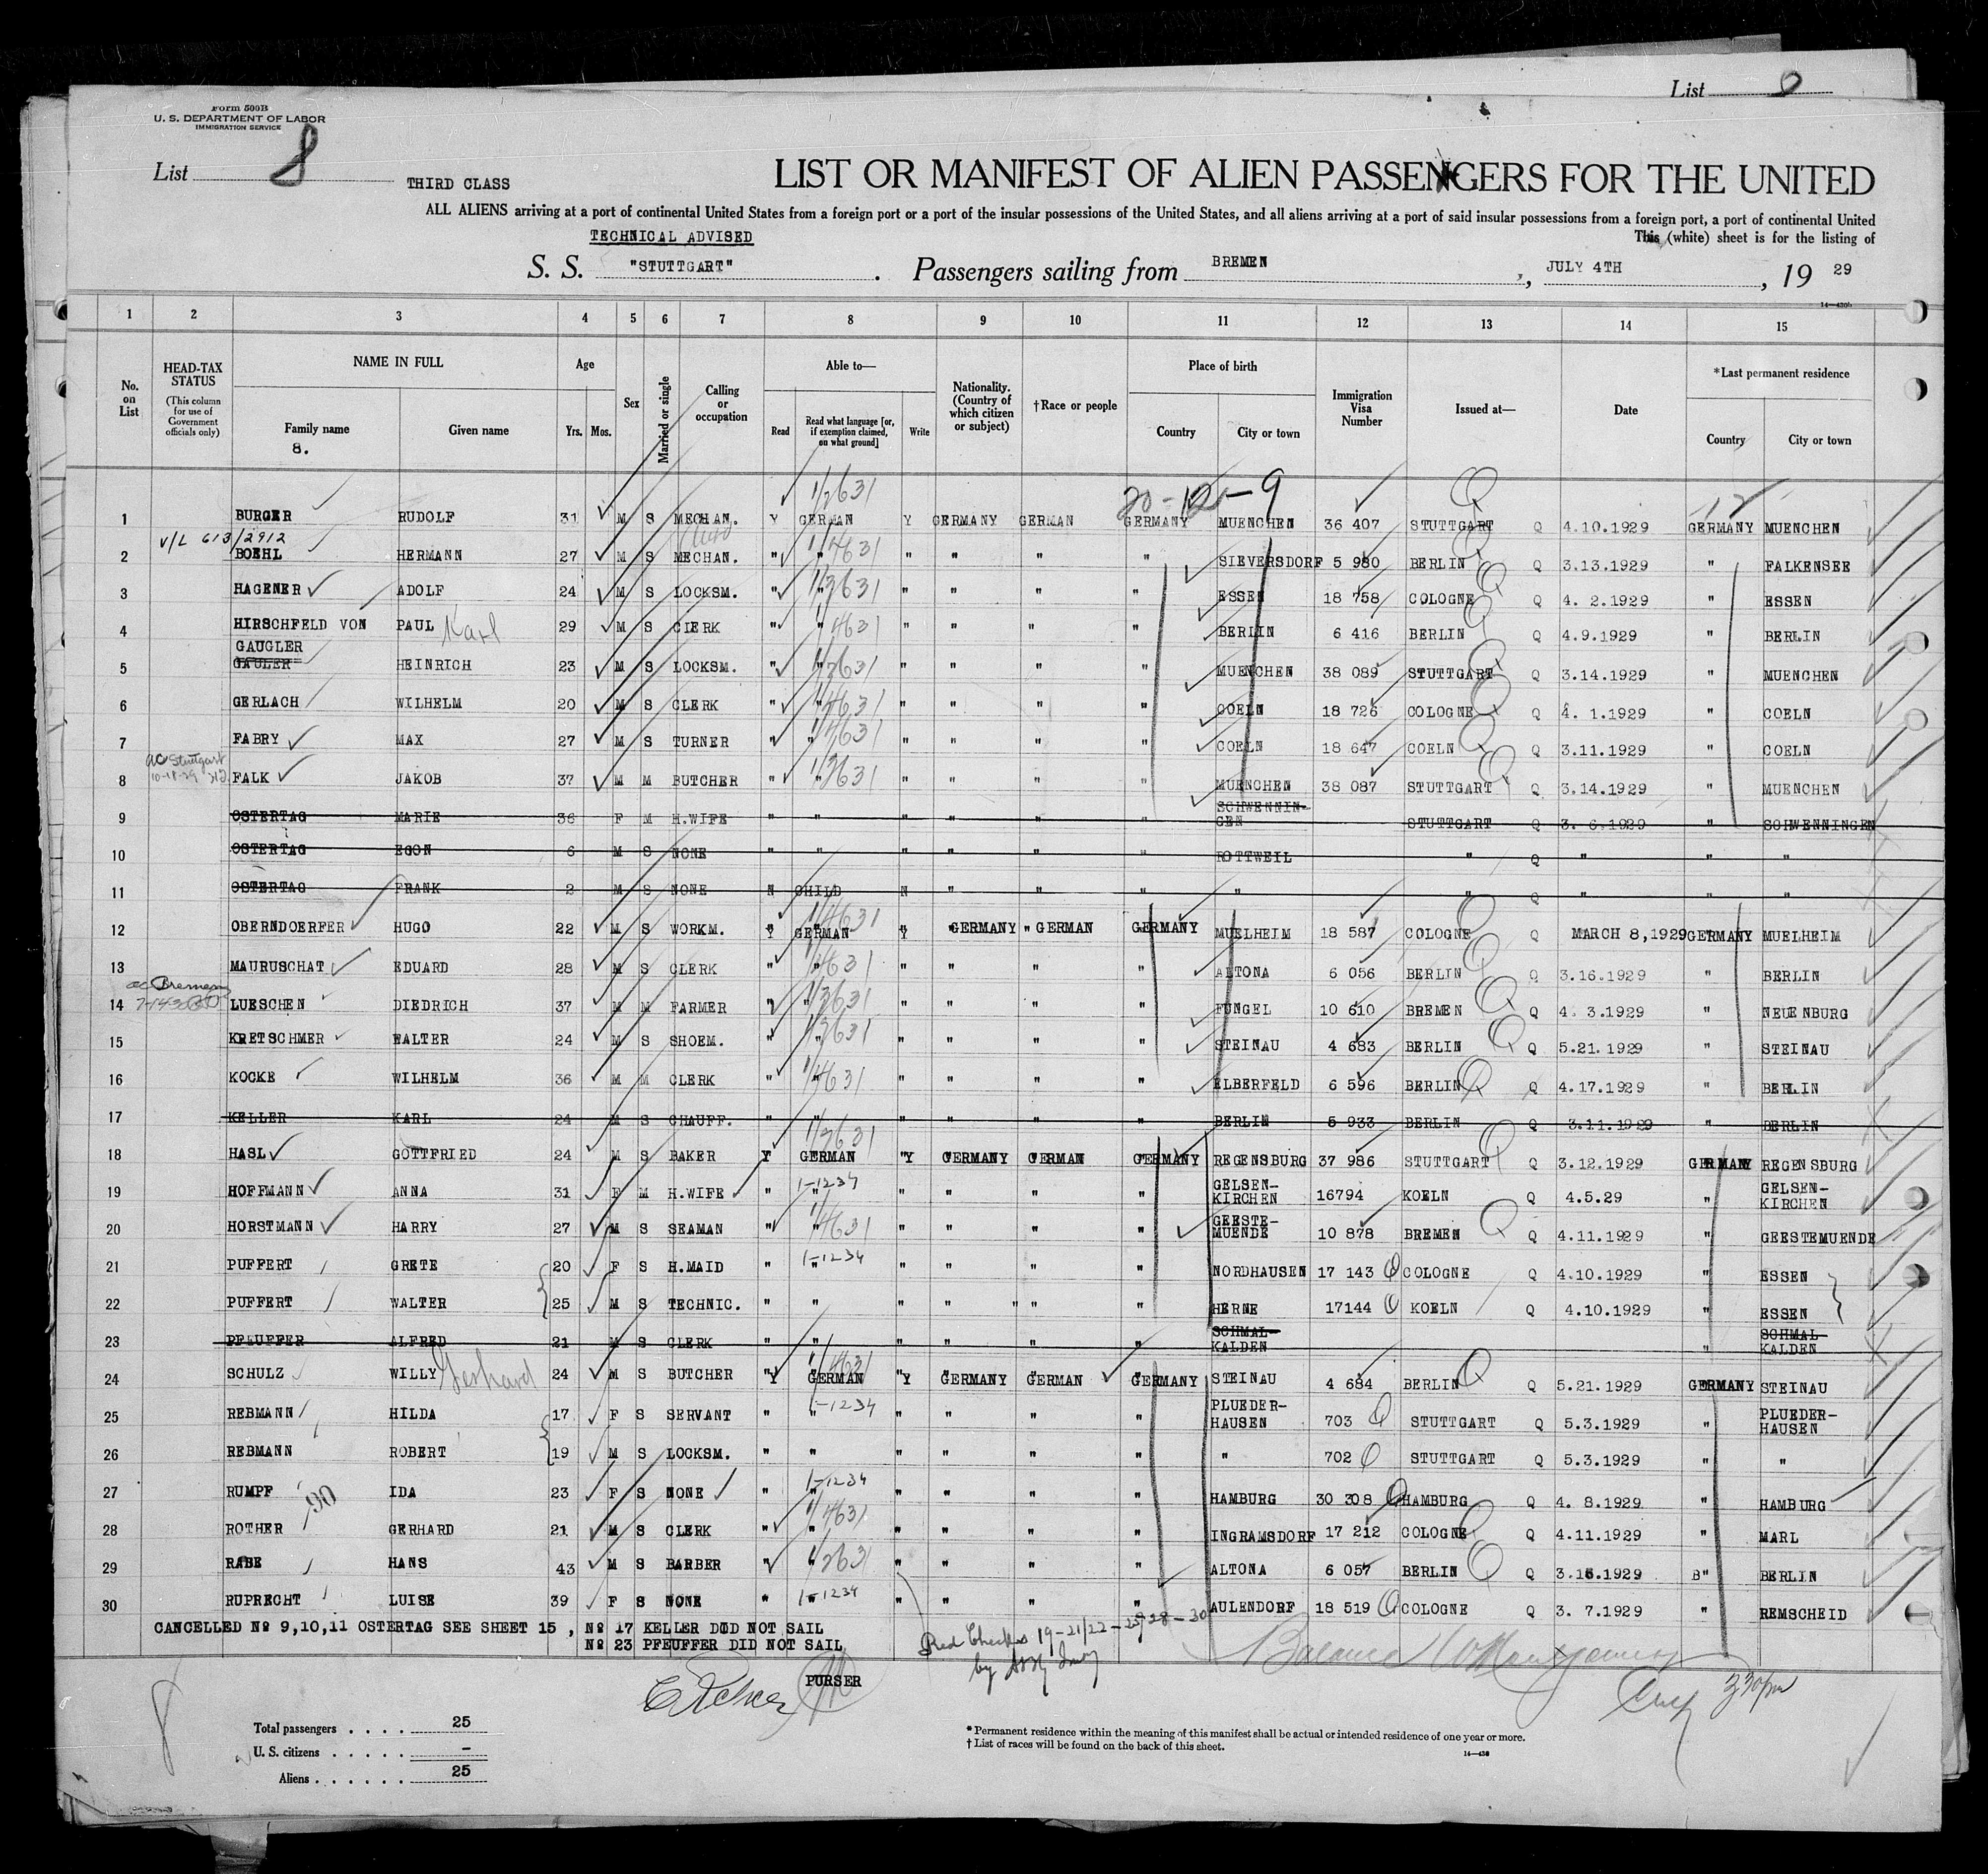 List 9
Form 500B
U. S. DEPARTMENT OF LABOR
IMMIGRATION SERVICE
List 8
THIRD CLASS
LIST OR MANIFEST OF ALIEN PASSENGERS FOR THE UNITED
ALL ALIENS arriving at a port of continental United States from a foreign port or a port of the insular possessions of the United States, and all aliens arriving at a port of said insular possessions from a foreign port, a port of continental United
This (white) sheet is for the listing of
TECHNICAL ADVISED
S. S. "STUTTGART" . Passengers sailing from BREMEN , JULY 4TH , 19 29
14—430b
1 2 3 4 5 6 7 8 9 10 11 12 13 14 15
No. on List
HEAD-TAX STATUS
(This column for use of Government officials only)
NAME IN FULL
Family name
8.
Given name
Age
Yrs. Mos.
Sex
Married or single
Calling or occupation
Able to—
Read
Read what language [or, if exemption claimed, on what ground]
Write
Nationality. (Country of which citizen or subject)
†Race or people
Place of birth
Country
City or town
Immigration Visa Number
Issued at—
Date
*Last permanent residence
Country
City or town
1/2631
1 BURGER RUDOLF 31 M S MECHAN. Y GERMAN Y GERMANY GERMAN GERMANY MUENCHEN 36 407 STUTTGART Q 4.10.1929 GERMANY MUENCHEN
V/L 613/2912
2 BOEHL HERMANN 27 M S MECHAN. " " 1/4631 " " " " SIEVERSDORF 5 980 BERLIN Q 3.13.1929 " FALKENSEE
3 HAGENER ADOLF 24 M S LOCKSM. " " 1/2631 " " " " ESSEN 18 758 COLOGNE Q 4. 2.1929 " ESSEN
4 HIRSCHFELD VON PAUL Karl 29 M S ClERK " " 1/4631 " " " " BERLIN 6 416 BERLIN Q 4.9.1929 " BERLIN
GAUGLER
5 GAULER HEINRICH 23 M S LOCKSM. " " 1/2631 " " " " MUENCHEN 38 089 STUTTGART Q 3.14.1929 " MUENCHEN
6 GERLACH WILHELM 20 M S CLERK " " 1/4631 " " " " COELN 18 726 COLOGNE Q 4. 1.1929 " COELN
7 FABRY MAX 27 M S TURNER " " 1/4631 " " " " COELN 18 647 COELN Q 3.11.1929 " COELN
ac Stuttgart
10-18-29
8 FALK JAKOB 37 M M BUTCHER " " 1/2631 " " " " MUENCHEN 38 087 STUTTGART Q 3.14.1929 " MUENCHEN
9 OSTERTAG MARIE 36 F M H.WIFE " " " " " " SCHWENNIN-GEN STUTTGART Q 3. 6.1929 " SCHWENNINGEN
10 OSTERTAG EGON 6 M S NONE " " " " " " ROTTWEIL " Q " " "
11 OSTERTAG FRANK 2 M S NONE N CHILD N " " " " " Q " " "
12 OBERNDOERFER HUGO 22 M S WORKM. Y GERMAN 1/4631 Y GERMANY GERMAN GERMANY MUELHEIM 18 587 COLOGNE Q MARCH 8,1929 GERMANY MUELHEIM
13 MAURUSCHAT EDUARD 28 M S CLERK " " 1/4631 " " " " ALTONA 6 056 BERLIN Q 3.16.1929 " BERLIN
ac Bremen
14 LUESCHEN DIEDRICH 37 M M FARMER " " 1/2631 " " " " FUNGEL 10 610 BREMEN Q 4. 3.1929 " NEUENBURG
15 KRETSCHMER WALTER 24 M S SHOEM. " " 1/2631 " " " " STEINAU 4 683 BERLIN Q 5.21.1929 " STEINAU
16 KOCKE WILHELM 36 M M CLERK " " 1/4631 " " " " ELBERFELD 6 596 BERLIN Q 4.17.1929 " BERLIN
17 KELLER KARL 24 M S CHAUFF. " " " " " " BERLIN 5 933 BERLIN Q 3.11.1929 " BERLIN
18 HASL GOTTFRIED 24 M S BAKER Y GERMAN 1/2631 Y GERMANY GERMAN GERMANY REGENSBURG 37 986 STUTTGART Q 3.12.1929 GERMANY REGENSBURG
19 HOFFMANN ANNA 31 F M H.WIFE " " 1-1234 " " " " GELSEN-KIRCHEN 16794 KOELN Q 4.5.29 " GELSEN-KIRCHEN
20 HORSTMANN HARRY 27 M S SEAMAN " " 1/4631 " " " " GEESTE-MUENDE 10 878 BREMEN Q 4.11.1929 " GEESTEMUENDE
21 PUFFERT GRETE 20 F S H.MAID " " 1-1234 " " " " NORDHAUSEN 17 143 COLOGNE Q 4.10.1929 " ESSEN
22 PUFFERT WALTER 25 M S TECHNIC. " " " " " " HERNE 17144 KOELN Q 4.10.1929 " ESSEN
23 PFEUFFER ALFRED 21 M S CLERK " " " " " " SCHMAL-KALDEN " SCHMAL-KALDEN
24 SCHULZ WILLY Gerhard 24 M S BUTCHER Y GERMAN 1/4631 Y GERMANY GERMAN GERMANY STEINAU 4 684 BERLIN Q 5.21.1929 GERMANY STEINAU
25 REBMANN HILDA 17 F S SERVANT " " 1-1234 " " " " PLUEDER-HAUSEN 703 STUTTGART Q 5.3.1929 " PLUEDER-HAUSEN
26 REBMANN ROBERT 19 M S LOCKSM. " " " " " " " 702 STUTTGART Q 5.3.1929 " "
27 RUMPF IDA 23 F S NONE " " 1-1234 " " " " HAMBURG 30 308 HAMBURG Q 4. 8.1929 " HAMBURG
90
28 ROTHER GERHARD 21 M S CLERK " " 1/4631 " " " " INGRAMSDORF 17 212 COLOGNE Q 4.11.1929 " MARL
29 RABE HANS 43 M S BARBER " " 1/2631 " " " " ALTONA 6 057 BERLIN Q 3.16.1929 B" BERLIN
30 RUPRECHT LUISE 39 F S NONE " " 1-1234 " " " " AULENDORF 18 519 COLOGNE Q 3. 7.1929 " REMSCHEID
CANCELLED No 9,10,11 OSTERTAG SEE SHEET 15 , No 17 KELLER DID NOT SAIL
No 23 PFEUFFER DID NOT SAIL
Red Checks 19-21/22-25/28-30
by
PURSER
330pm
8
Total passengers . . . . 25
U. S. citizens . . . . . –
Aliens . . . . . . 25
* Permanent residence within the meaning of this manifest shall be actual or intended residence of one year or more.
† List of races will be found on the back of this sheet.
14—430